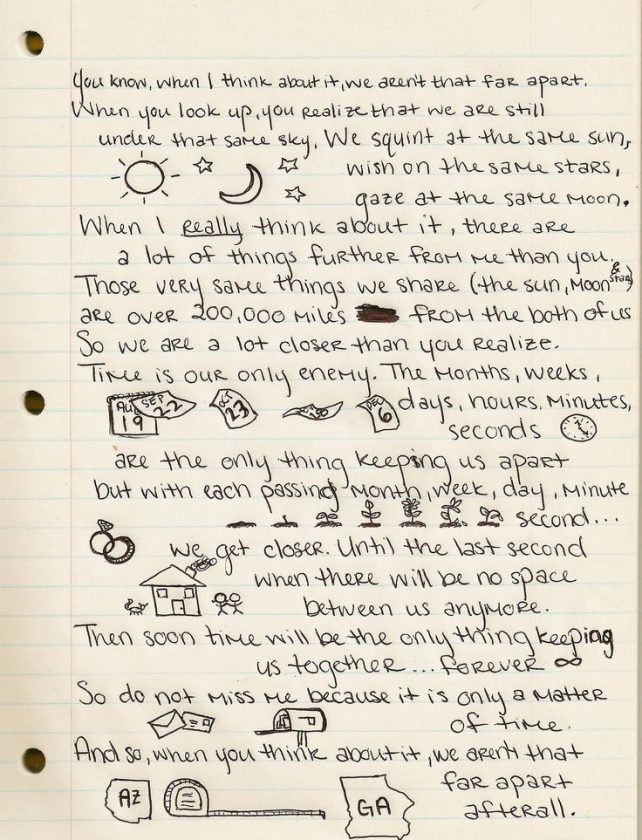 You know, when I think about it, we aren't that far apart.
When you look up, you realize that we are still
under that same sky. We squint at the same sun,
wish on the same stars,
gaze at the same moon.
When I really think about it, there are
a lot of things further from me than you.
Those very same things we share (the sun, moon & stars)
are over 200,000 miles from the both of us
So we are a lot closer than you realize.
Time is our only enemy. The months, weeks,
AUG 19 SEP 22 OCT 23 DEC 6 days, hours, minutes,
seconds
are the only thing keeping us apart
but with each passing month, week, day, minute
second...
we get closer. Until the last second
when there will be no space
between us anymore.
Then soon time will be the only thing keeping
us together... forever ∞
So do not miss me because it is only a matter
of time.
And so, when you think about it, we aren't that
far apart
AZ GA afterall.